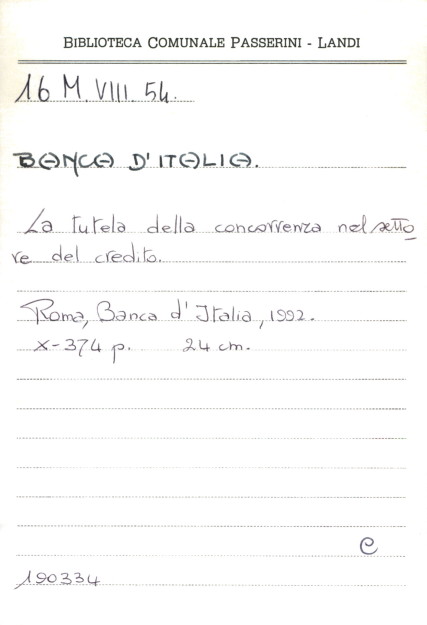 BIBLIOTECA COMUNALE PASSERINI - LANDI
16 M. VIII. 54.
BANCA D'ITALIA.
La tutela della concorrenza nel setto
re del credito.
Roma, Banca d'Italia, 1992.
X-374 p. 24 cm.
C
190334